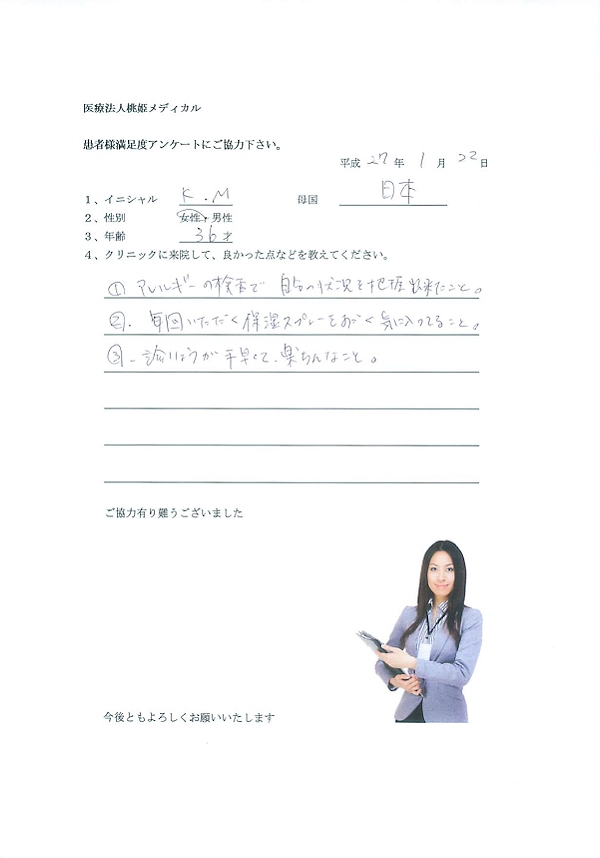 医療法人桃姫メディカル
患者様満足度アンケートにご協力下さい。
平成 27 年 1 月 22 日
1、イニシャル K.M 母国 日本
2、性別 女性・男性
3、年齢 36才
4、クリニックに来院して、良かった点などを教えてください。
① アレルギーの検査で 自分の状況を把握出来たこと。
②. 毎回いただく保湿スプレーをすごく気に入ってること。
③. 診りょうが手早くて、楽ちんなこと。
ご協力有り難うございました
今後ともよろしくお願いいたします